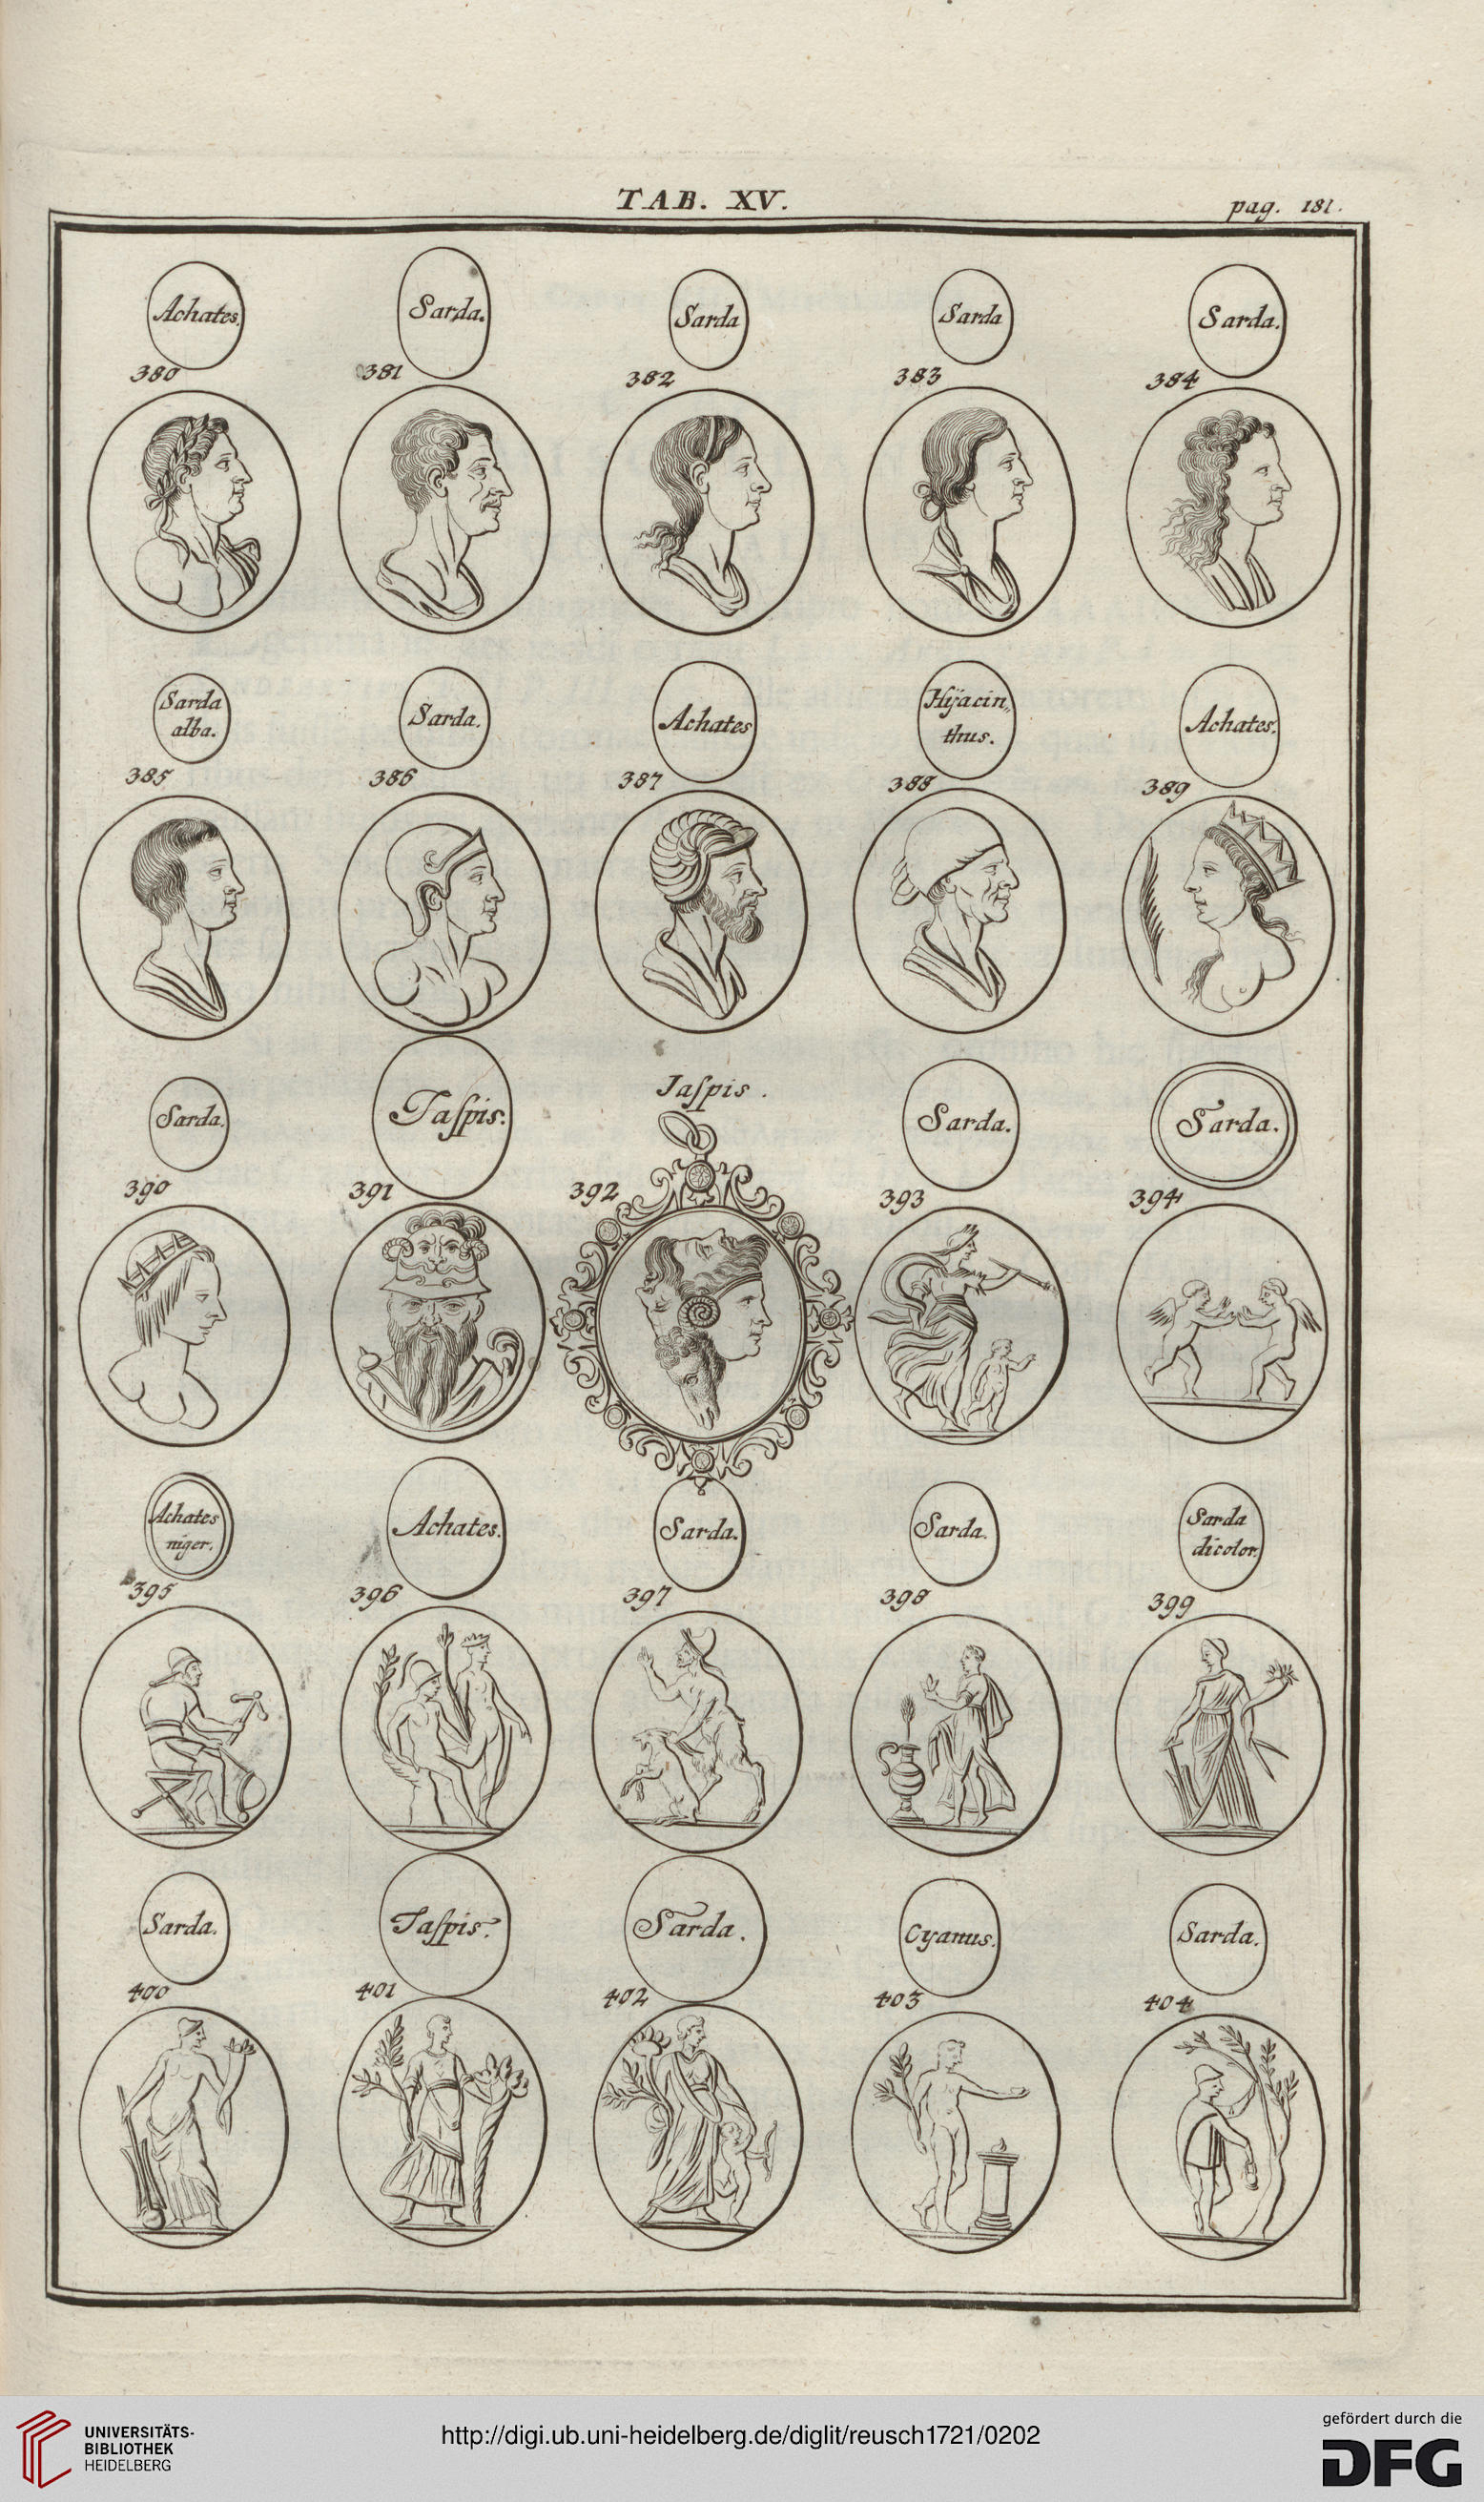 TAB. XV.
pag. 181.
Achates.
Sarda.
Sarda
Sarda
Sarda.
380
381
382
383
384
Sarda
alba.
Sarda.
Achates
Hÿacin„
thus.
Achates.
385
386
387
388
389
Sarda.
Jaſpis.
Jaſpis.
Sarda.
Sarda.
390
391
392
393
394
Achates
niger.
Achates.
Sarda.
Sarda.
Sarda
dicolor.
395
396
397
398
399
Sarda.
Jaſpis.
Sarda.
Cyanus.
Sarda.
400
401
402
403
404
UNIVERSITÄTS-
BIBLIOTHEK
HEIDELBERG
http://digi.ub.uni-heidelberg.de/diglit/reusch1721/0202
gefördert durch die
DFG